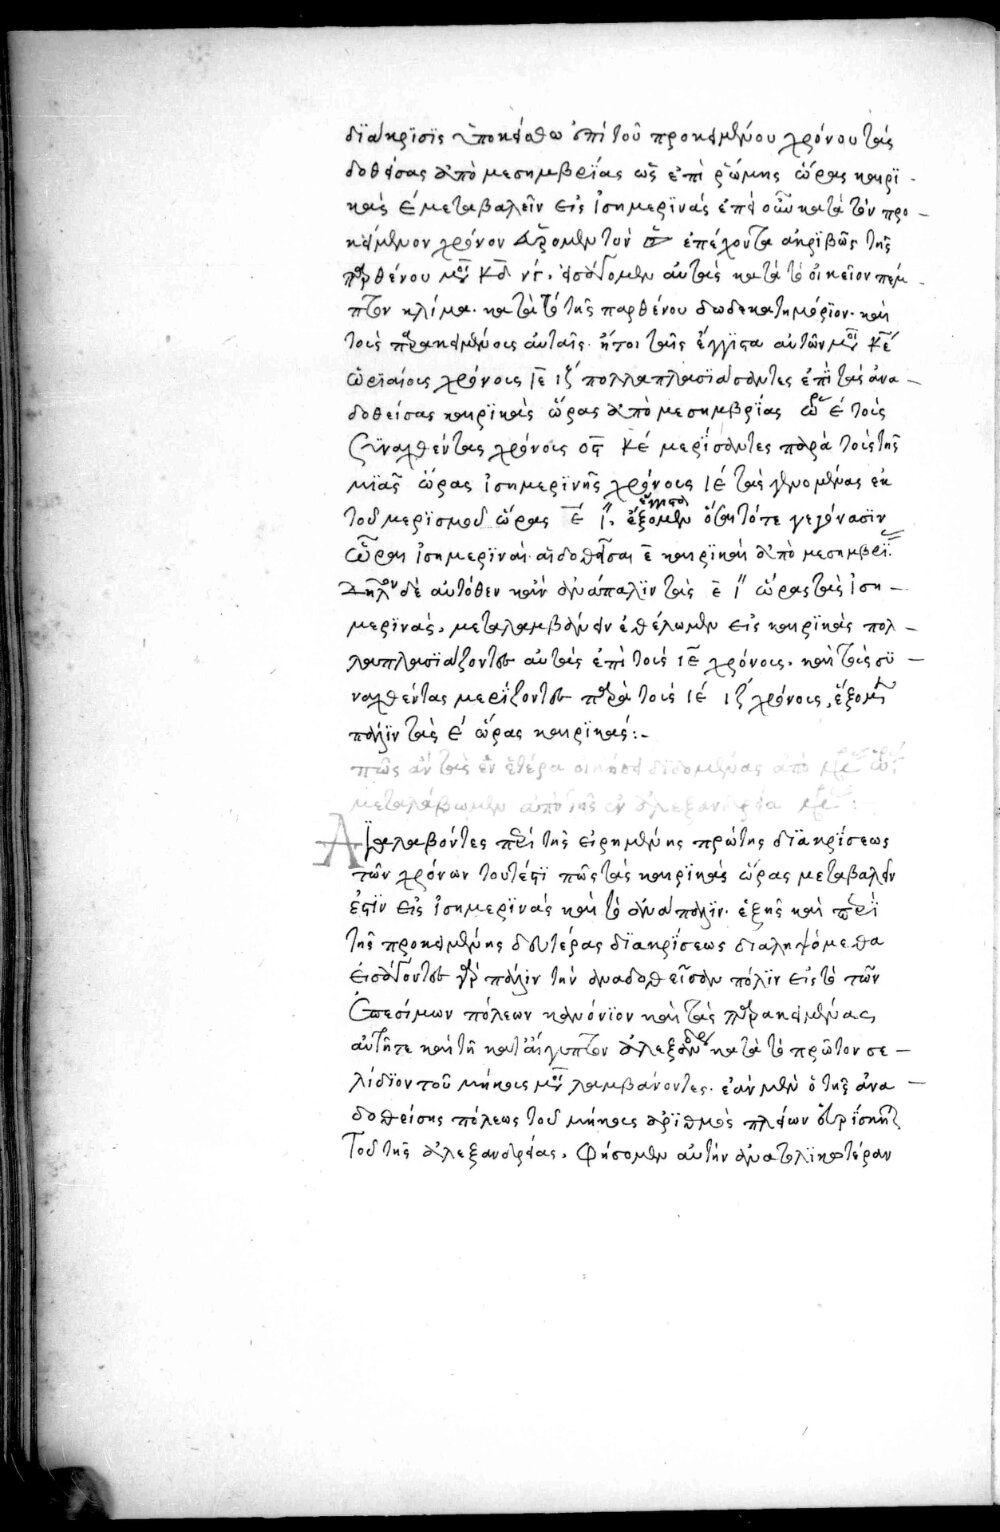 διάκρισις ὑποκείσθω ἐπὶ τοῦ προκειμένου χρόνου τὰς
δοθείσας ἀπὸ μεσημβρίας ὡς ἐπὶ ῥώμης ὥρας καιρι
κὰς ε μεταβαλεῖν εἰς ἰσημερινάς ἐπεὶ οὖν κατὰ τὸν προ
κείμενον χρόνον τὸν ἐπέχοντα ἀκριβῶς τῆς
παρθένου μοι κδ νγ. εἰσάξομεν αὐτὰς κατὰ τὸ οἰκεῖον πέμ
πτον κλίμα. κατὰ τὸ τῆς παρθένου δωδεκατημόριον. καὶ
τοῖς παρακειμένοις αὐταῖς ἤτοι ταῖς ἔγγιστα αὐτῶν μοι κε
ὡριαίοις χρόνοις ιε ιζ πολλαπλασιάσαντες ἐπὶ τὰς ἀνα
δοθείσας καιρικὰς ὥρας ἀπὸ μεσημβρίας ε τοὺς
συναχθέντας χρόνους οϛ κε μερίσαντες παρὰ τοὺς τῆς
μιᾶς ὥρας ἰσημερινῆς χρόνους ιε τὰς γενομένας ἐκ
τοῦ μερισμοῦ ὥρας ε ἔγγιστα ἕξομεν ὅσαι τότε γεγόνασιν
ὧραι ἰσημεριναὶ αἱ δοθεῖσαι ε καιρικαὶ ἀπὸ μεσημβρι
δῆλον δὲ αὐτόθεν κἂν ἀνάπαλιν τὰς ε ὥρας τὰς ἰση
μερινὰς, μεταλαμβάνειν ἐθέλωμεν εἰς καιρικὰς πολ
λαπλασιάζοντες αὐτὰς ἐπὶ τοὺς ιε χρόνους. καὶ τοὺς συ
ναχθέντας μερίζοντες παρὰ τοὺς ιε ιζ χρόνους, ἕξομεν
πάλιν τὰς ε ὥρας καιρικάς:-
πῶς ἂν τὰς ἐν ἑτέρα οἰκήσει διδομένας ἀπὸ
μεταλάβωμεν ἀπὸ τῆς ἐν ἀλεξανδρεία
διαλαβόντες περὶ τῆς εἰρημένης πρώτης διακρίσεως
τῶν χρόνων τουτέστι πῶς τὰς καιρικὰς ὥρας μεταβαλεῖν
ἔστιν εἰς ἰσημερινὰς καὶ τὸ ἀνάπαλιν. ἑξῆς καὶ περὶ
τῆς προκειμένης δευτέρας διακρίσεως διαληψόμεθα
εἰσάγοντες γὰρ πάλιν τὴν ἀναδοθεῖσαν πόλιν εἰς τὸ τῶν
ἐπισήμων πόλεων κανόνιον καὶ τὰς παρακειμένας
αὐτῆ τε καὶ τῆ κατ' αἴγυπτον ἀλεξανδρ κατὰ τὸ πρῶτον σε
λίδιον τοῦ μήκους μοι λαμβάνοντες. ἐὰν μὲν ὁ τῆς ἀνα
δοθείσης πόλεως τοῦ μήκους ἀριθμὸς πλείων εὑρίσκητ
τοῦ τῆς ἀλεξανδρείας, φήσομεν αὐτὴν ἀνατολικωτέραν